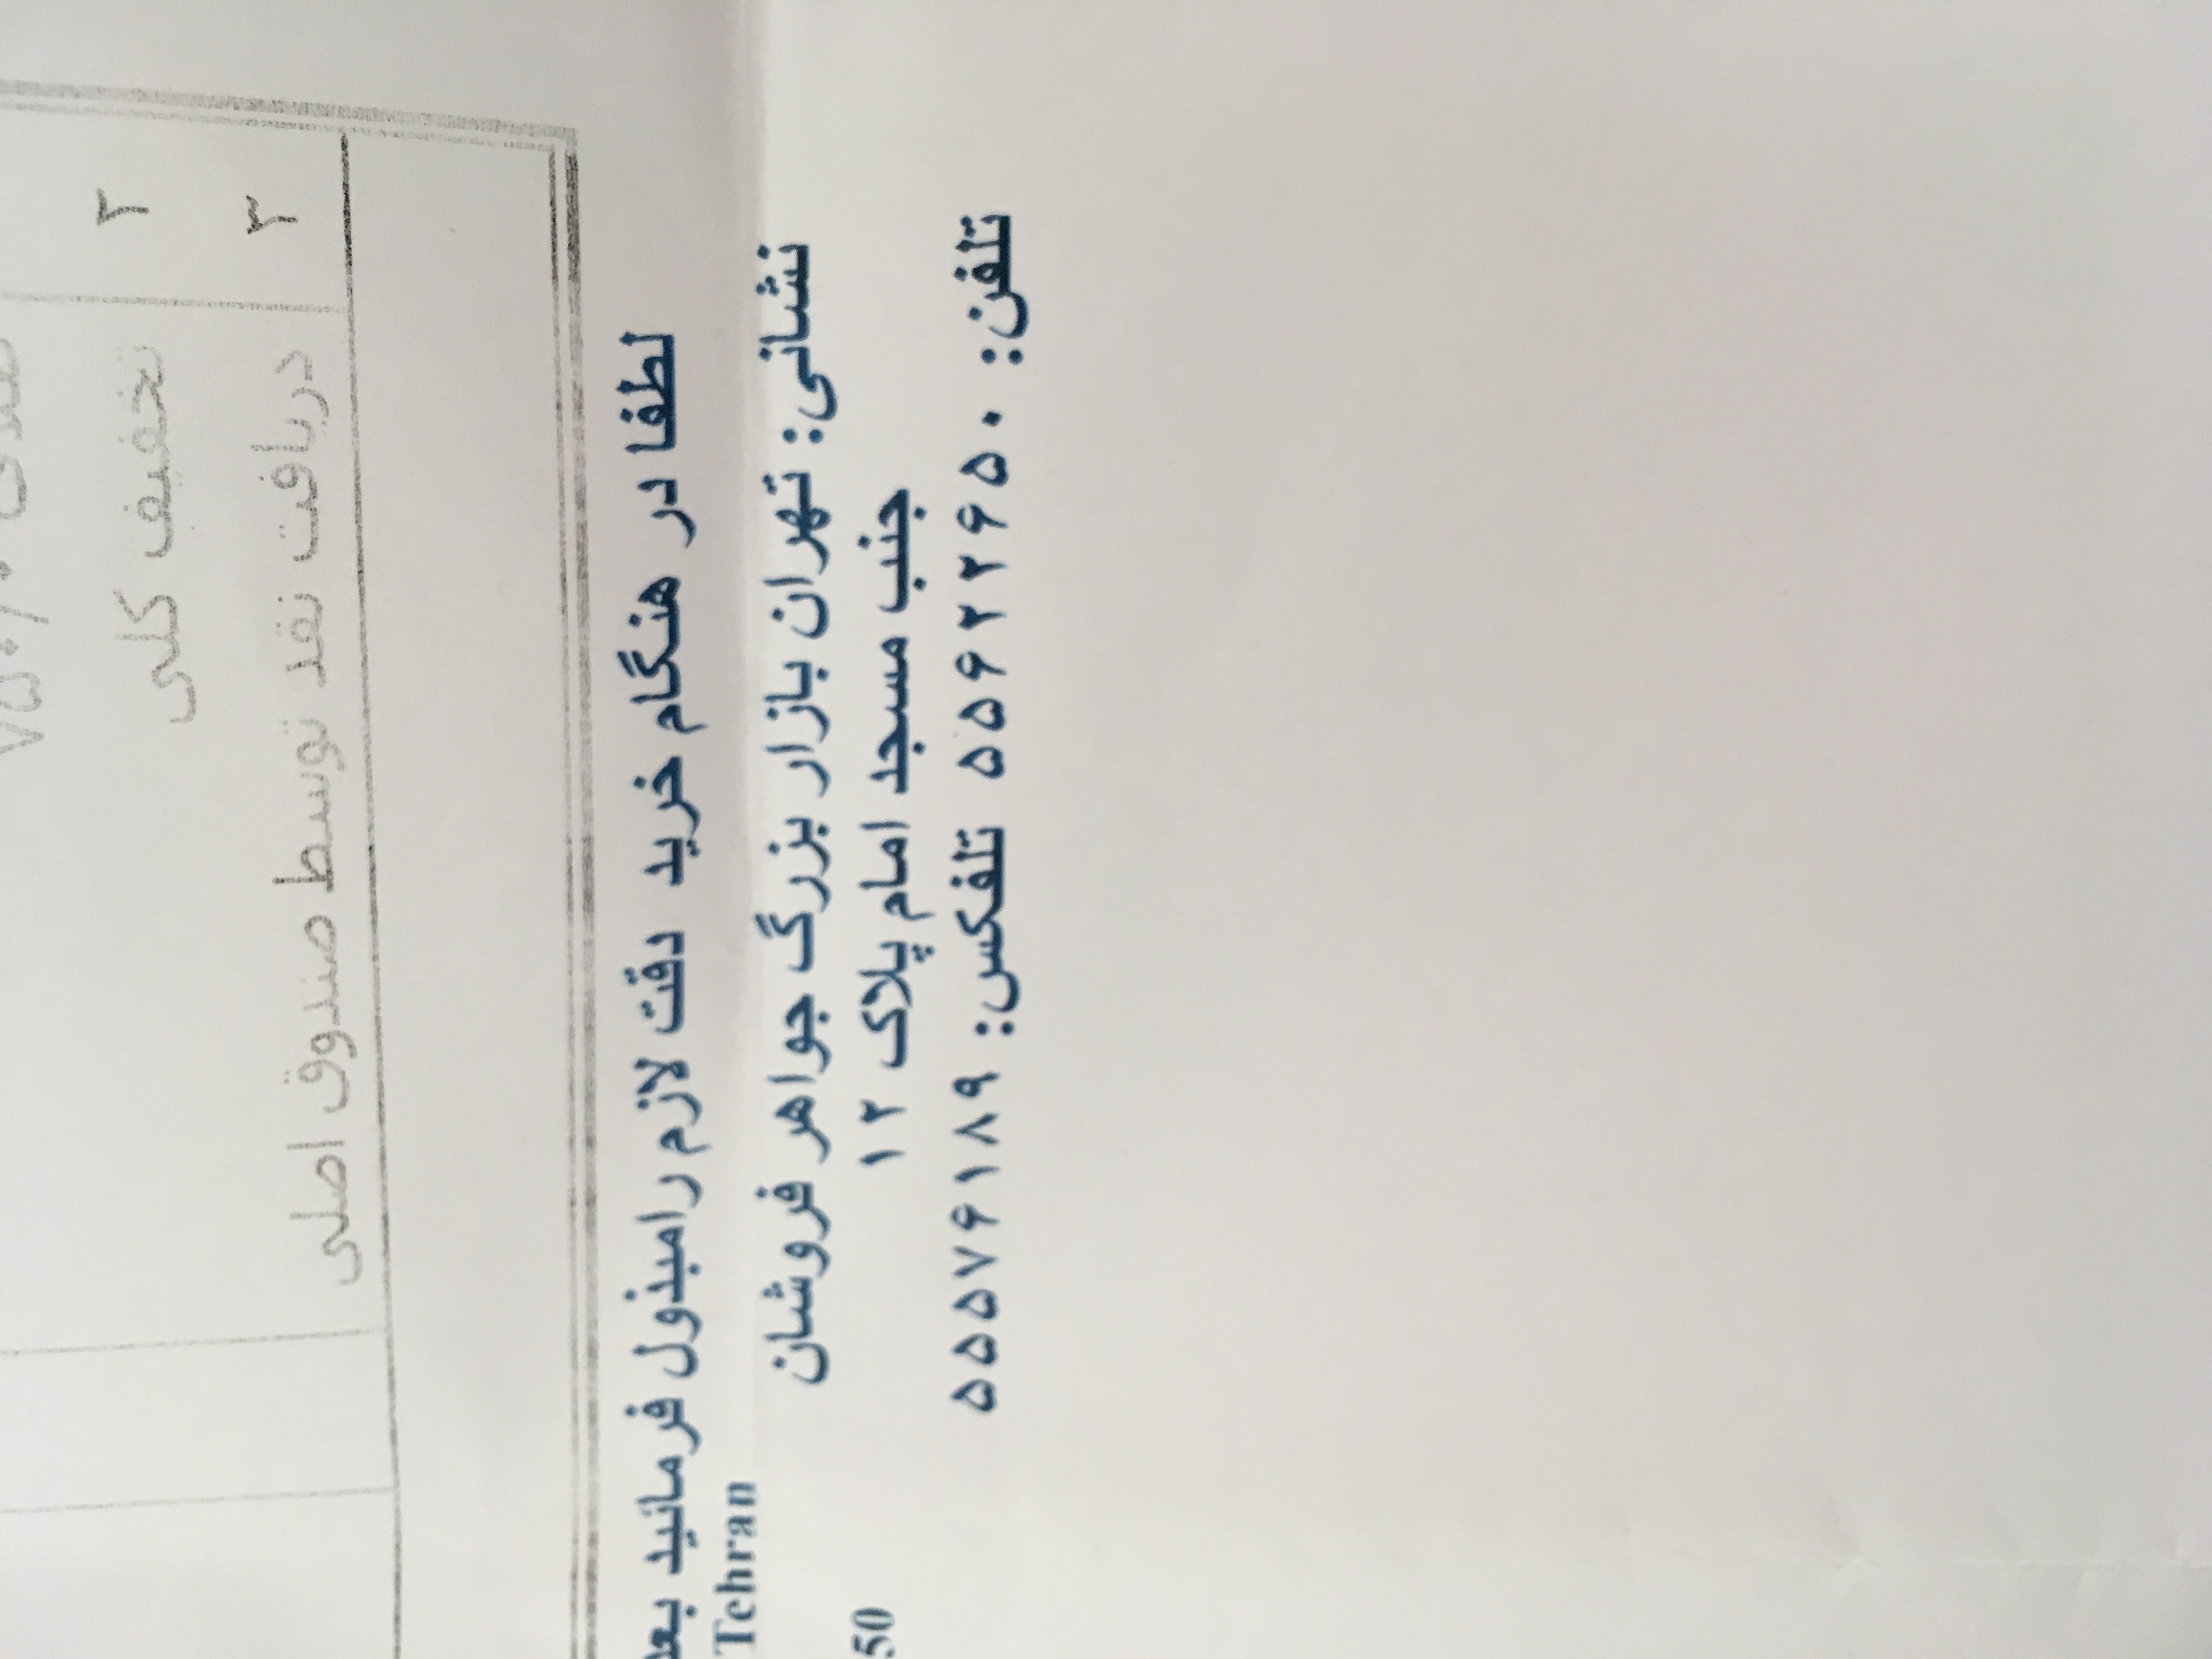 ۲ تخفیف کلی
۳ دریافت نقد توسط صندوق اصلی
لطفا در هنگام خرید دقت لازم را مبذول فرمائید بعد
Tehran
نشانی: تهران بازار بزرگ جواهر فروشان
جنب مسجد امام پلاک ۱۲
50
تلفن: ۵۵۶۲۲۶۵۰ تلفکس: ۵۵۵۷۶۱۸۹